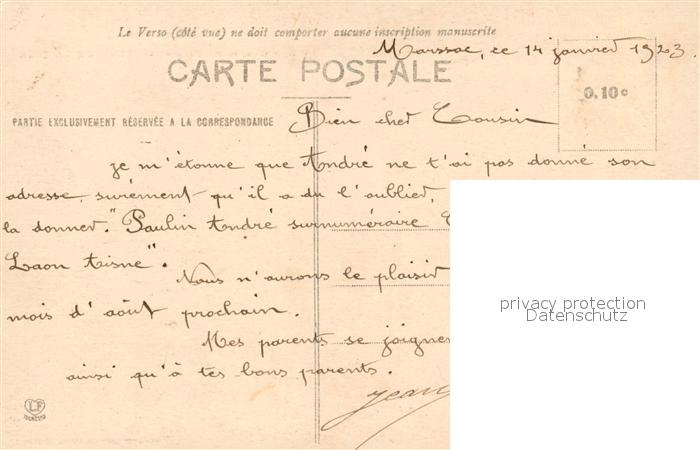 Le Verso (côté vue) ne doit comporter aucune inscription manuscrite
Marssac, ce 14 janvier 1923.
CARTE POSTALE
0.10c
PARTIE EXCLUSIVEMENT RÉSERVÉE A LA CORRESPONDANCE
Bien cher Cousin
Je m'étonne que André ne t'ai pas donné son
adresse, surément qu'il a du l'oublier,
la donner. "Paulin André surnuméraire
Laon Aisne".
Nous n'aurons le plaisir
mois d'août prochain.
Mes parents se joignent
ainsi qu'à tes bons parents.
Jean
LF
privacy protection
Datenschutz